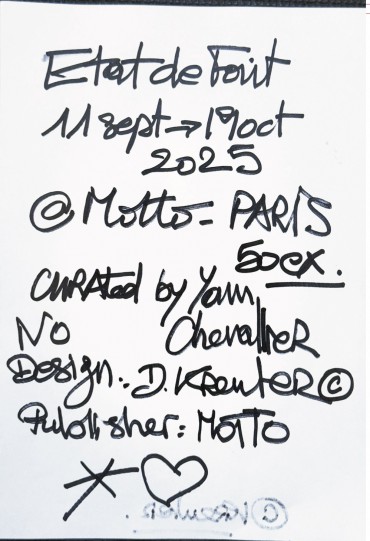 Etat de Fait
11 sept → 19 oct
2025
@ Motto = PARIS
50 ex.
CURATED by Yann
Chevallier
No
Design: D. Kreuter ©
Publisher: MOTTO